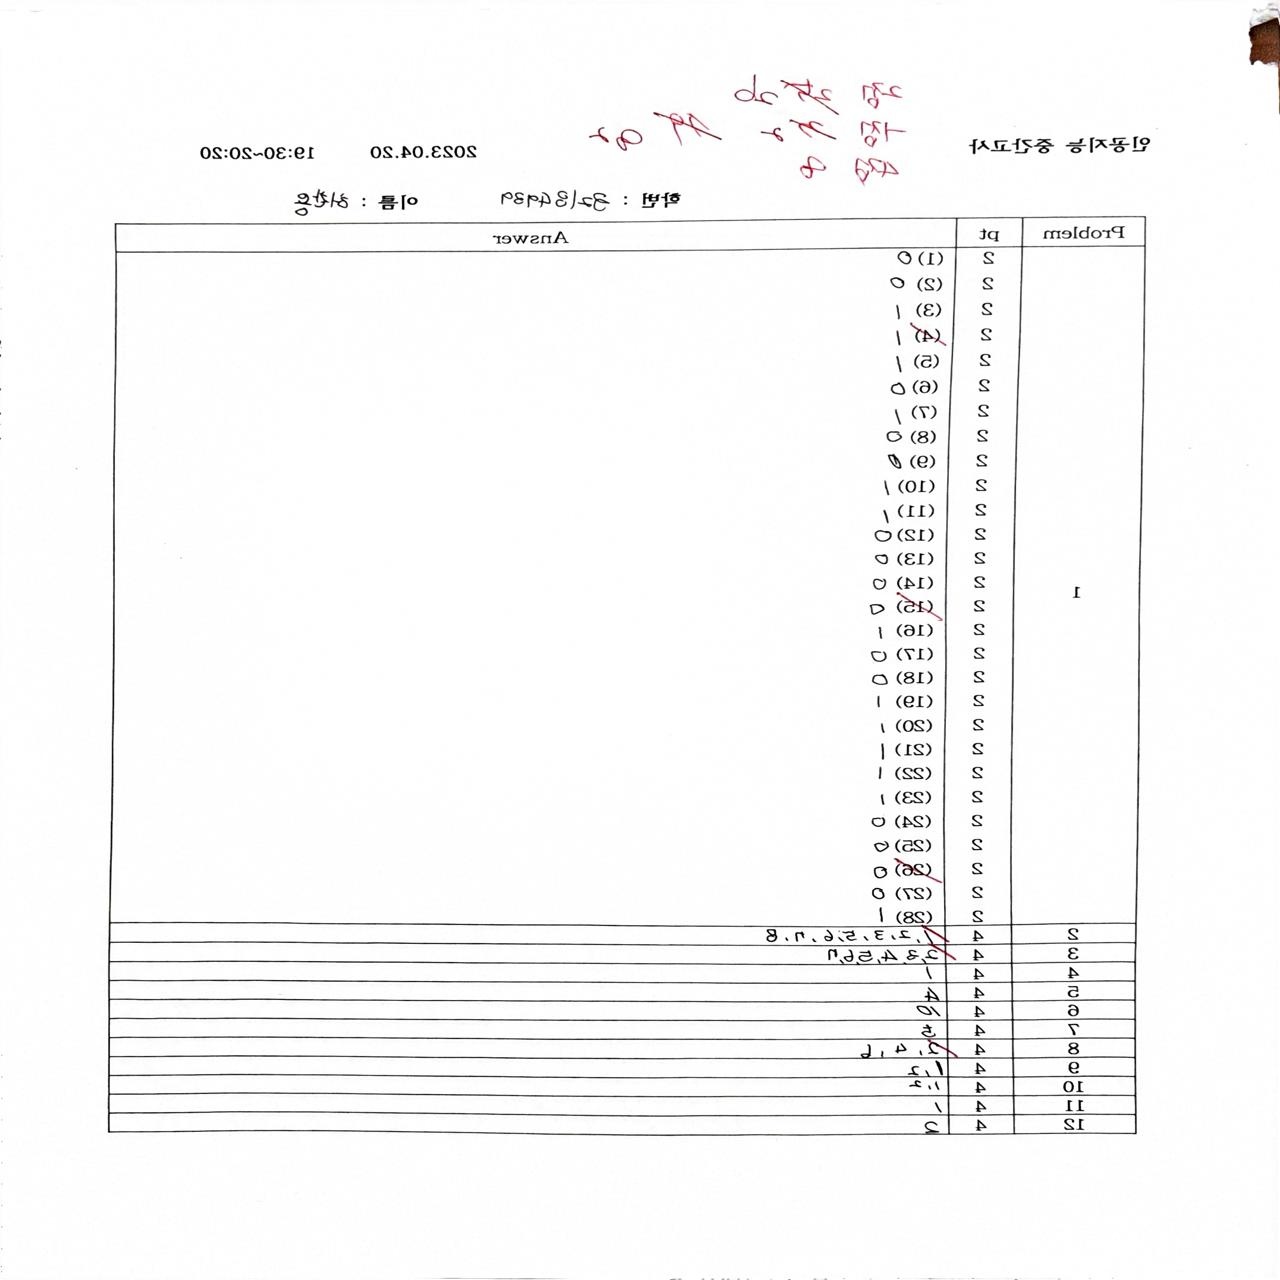 인공지능 중간고사 2023.04.20 19:30~20:20
학번 : 32184939 이름 :
Problem pt Answer
1
2 (1) 0
2 (2) 0
2 (3) 1
2 (4) 1
2 (5) 1
2 (6) 0
2 (7) 1
2 (8) 0
2 (9) 0
2 (10) 1
2 (11) 1
2 (12) 0
2 (13) 0
2 (14) 0
2 (15) 0
2 (16) 1
2 (17) 0
2 (18) 0
2 (19) 1
2 (20) 1
2 (21) 1
2 (22) 1
2 (23) 1
2 (24) 0
2 (25) 0
2 (26) 0
2 (27) 0
2 (28) 1
2 4 1, 2, 3, 5, 6, 7, 8
3 4 2,3,4,5,6,7
4 4 1
5 4 4
6 4 10
7 4 5
8 4 2, 4, 6
9 4 1, 2
10 4 1, 2
11 4 1
12 4 2